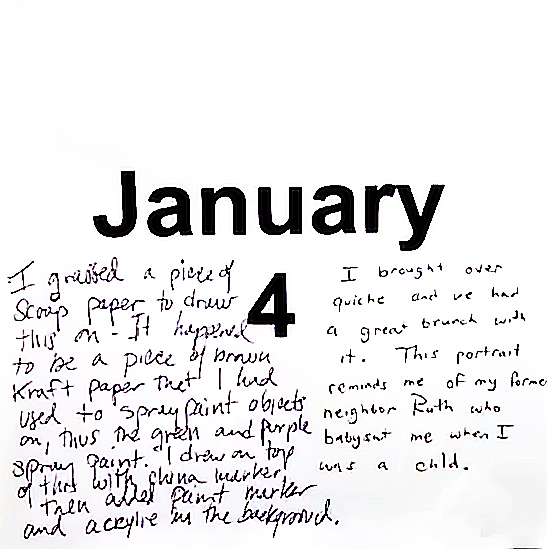 January
4
I grabbed a piece of
scrap paper to draw
this on - It happened
to be a piece of brown
Kraft paper that I had
used to spray paint objects
on, thus the green and purple
spray paint. I drew on top
of this with china marker,
then added paint marker
and acrylic in the background.
I brought over
quiche and we had
a great brunch with
it. This portrait
reminds me of my forme
neighbor Ruth who
babysat me when I
was a child.